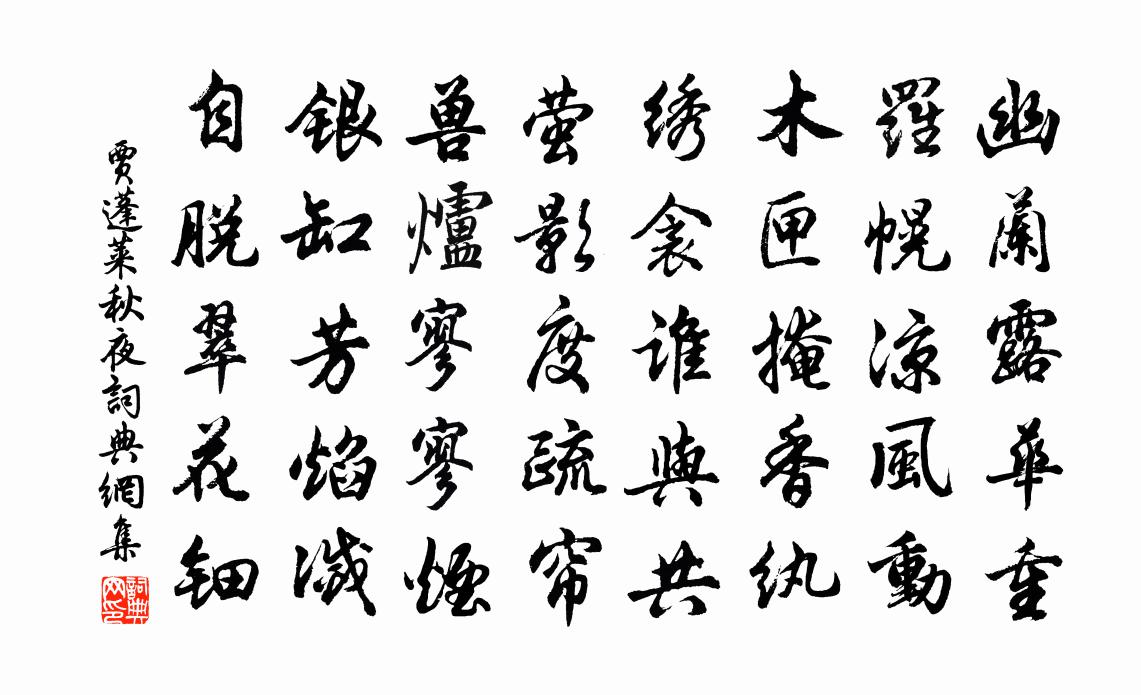 幽蘭露華重
羅幌涼風動
木匣掩香紈
绣衾誰與共
萤影度疏帘
兽爐寥寥煙
銀缸芳焰滅
自脱翠花鈿
賈蓬萊秋夜詞典網集
詞典網印